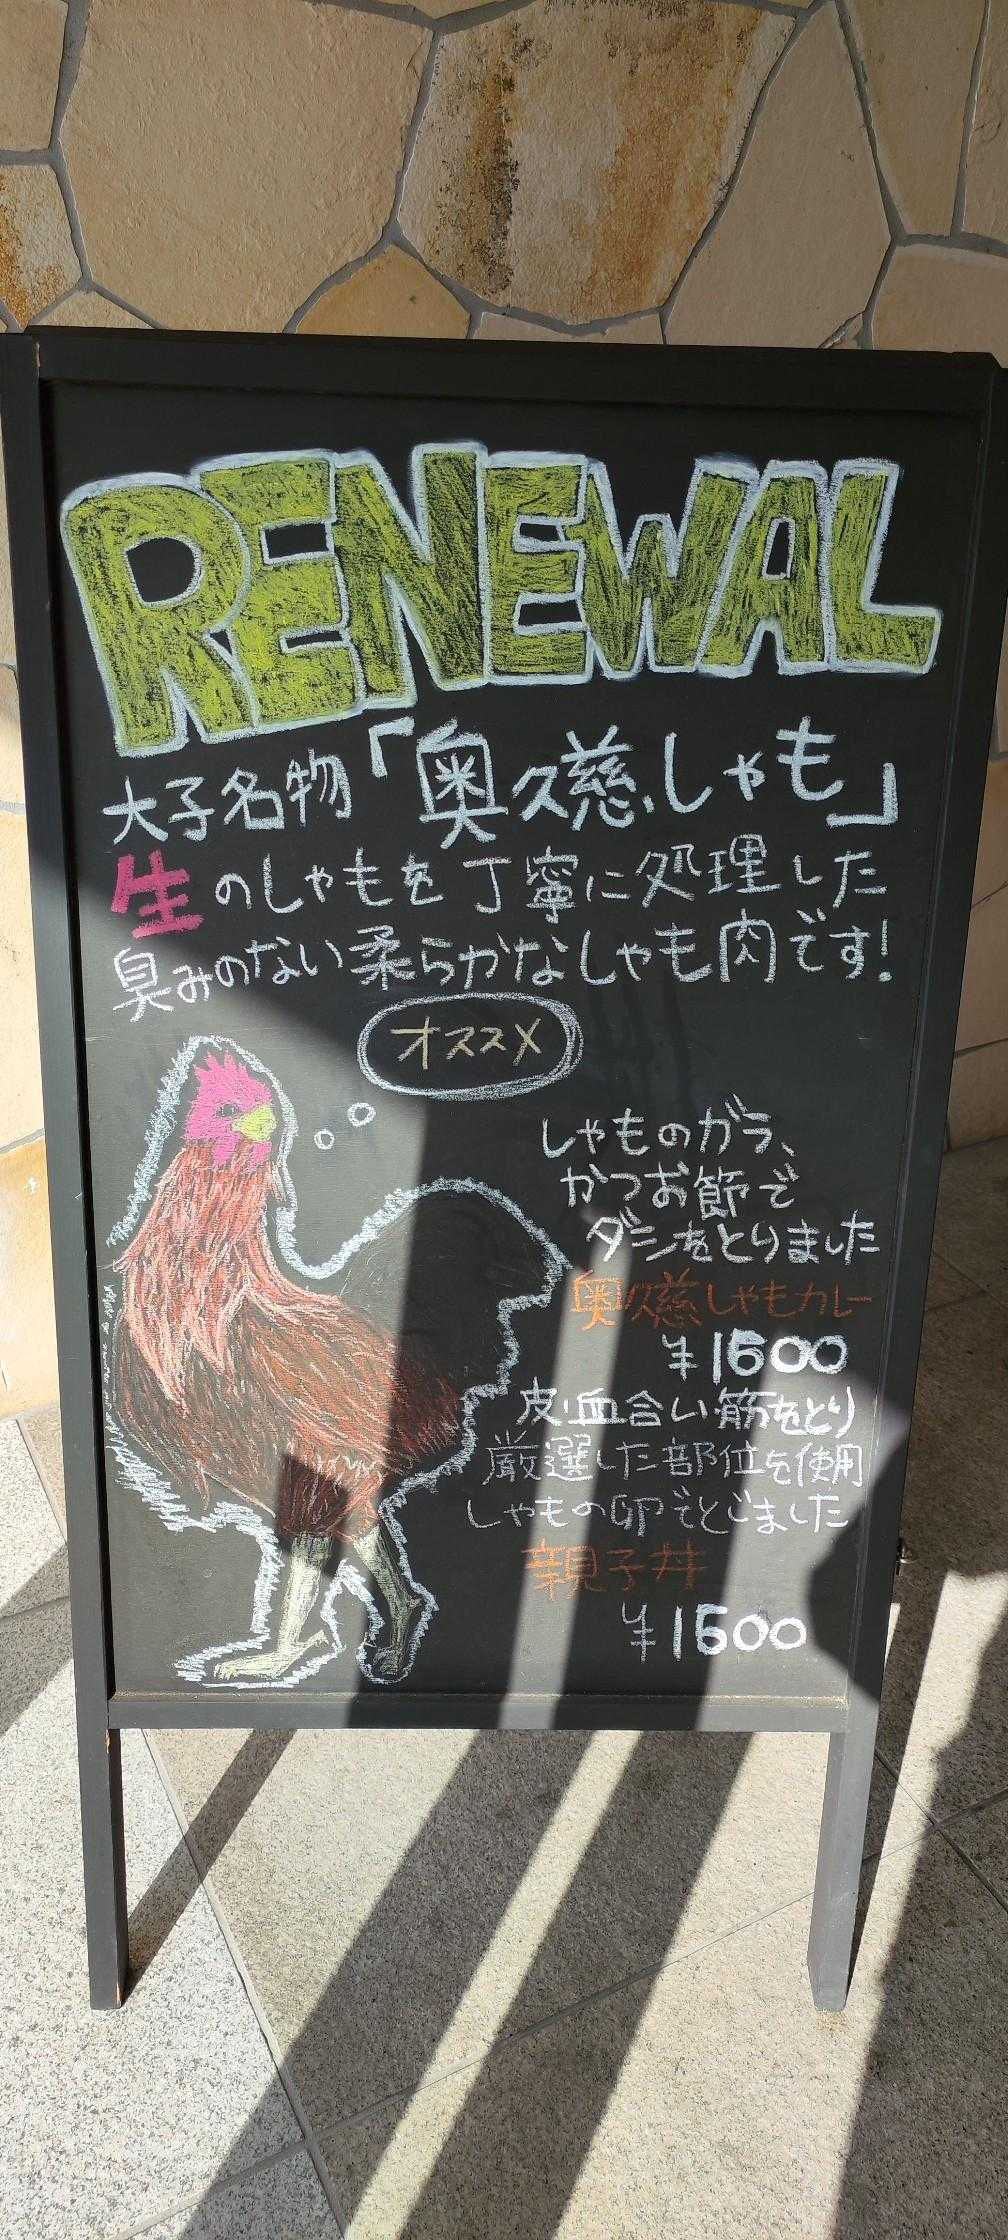 RENEWAL
大子名物「奥久慈しゃも」
生のしゃもを丁寧に処理した
臭みのない柔らかなしゃも肉です!
オススメ
しゃものガラ、
かつお節で
ダシをとりました
奥久慈しゃもカレー
¥1500
皮・血合い・筋をとり
厳選した部位を使用
しゃもの卵でとじました
親子丼
¥1500